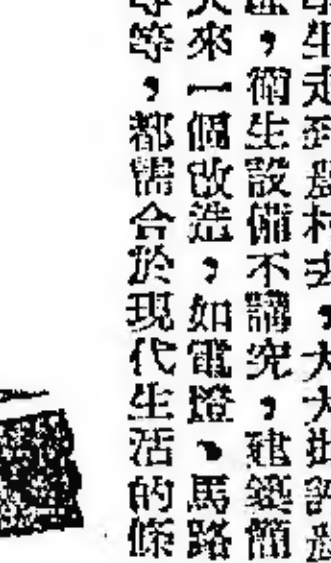 生走到農村去，大
衛生設備不講究，建築簡
來一個改造，如電燈、馬路
等，都需合於現代生活的條